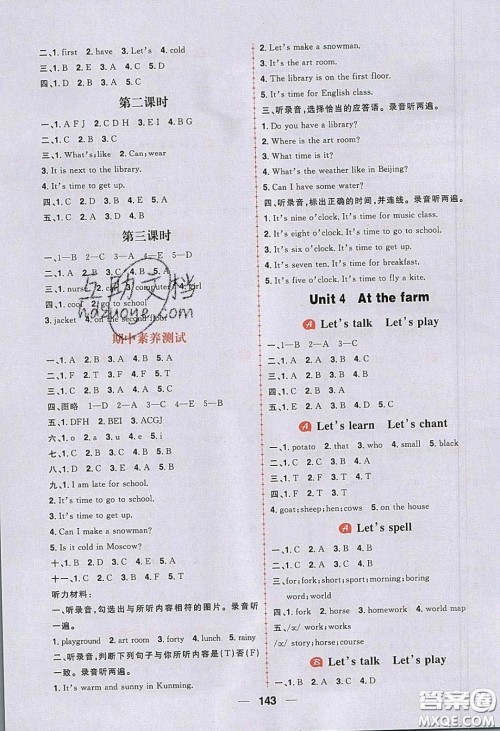 二、1. first 2. have 3. Let's 4. cold
三、1. B 2. E 3. A 4. C 5. D
四、1. D 2. B 3. E 4. C 5. A
第二课时
一、1. A F J 2. C D H 3. E I 4. B G
二、1. D 2. A 3. B 4. C 5. E
三、1. What's;like 2. Can;wear
3. It is next to the library.
4. It's time to get up.
四、1. C 2. A 3. D 4. E 5. B
第三课时
一、1. B 2. A 3. A 4. B 5. A
二、1—B 2—C 3—A 4—E 5—D
三、1. nurse 2. 3. computer 4. girl
四、1. cool 2. go to school
3. jacket 4. on the second floor
期中素养测试
一、1. A 2. B 3. B 4. A 5. B
二、1. F 2. T 3. F 4. T 5. T
三、1. B 2. A 3. C 4. A 5. B
四、图略 1—D 2—C 3—A 4—B 5—D
五、1. DFH 2. BEI 3. ACGJ
六、1. o 2. a 3. u 4. i 5. o
七、1. D 2. B 3. A 4. B 5. C
八、1. C 2. B 3. A 4. A 5. B
九、1. It's time to go to school.
2. It's time to get up.
3. Is it cold in Moscow?
十、1. D 2. B 3. E 4. C 5. A
十一、1. B 2. C 3. D 4. E 5. A
十二、1. C 2. B 3. A 4. B 5. A
听力材料:
一、听录音,勾选出与所听内容相符的图片。录音听
一遍。
1. playground 2. art room 3. forty 4. lunch 5. rainy
二、听录音,判断下列句子与你所听内容是(T)否(F)
一致。录音听两遍。
1. It's warm and sunny in Kunming.
2. Let's make a snowman.
3. It's the art room.
4. The library is on the first floor.
5. It's time for English class.
三、听录音,选择恰当的应答语。录音听两遍。
1. Do you have a library?
2. Where is the art room?
3. What time is it?
4. What's the weather like in Beijing?
5. Can I have some water?
四、听录音,标出正确的时间,并连线。录音听两遍。
1. It's nine o'clock. It's time for music class.
2. It's eight o'clock. It's time to go to school.
3. It's six o'clock. It's time to get up.
4. It's seven ten. It's time for breakfast.
5. It's five o'clock. It's time to fly a kite.
Unit 4 At the farm
A Let's talk Let's play
一、1—B 2—A 3—C
二、1. A 2. A 3. B 4. B
三、1. B 2. B 3. A 4. A
四、1. C 2. A 3. D 4. B
A Let's learn Let's chant
一、1. potato 2. that 3. who 4. small 5. black
二、1. B 2. B 3. A 4. A
三、1. F 2. T 3. T 4. T
四、1. goat;sheep;hens;cow 2. on the house
A Let's spell
一、1. B 2. A 3. A 4. B
三、for;fork;short;sport;morning;boring
word;world;work
四、1. fork 2. horse 3. homework 4. world map
五、/ɜː/ work;works
/ɔː/ story;horse;course
B Let's talk Let's play
143
互助文档
hazuoye.com
答案圈
MXQE.COM